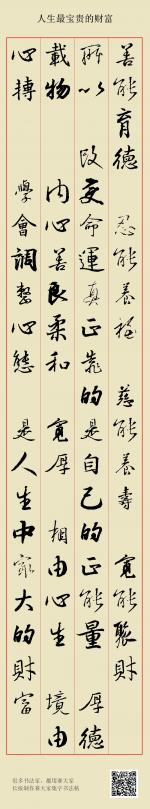 人生最宝贵的财富
善能育德 忍能養福 慈能養壽 寬能聚財
所以 改变命運真正靠的是自己的正能量 厚德
載物 内心善良柔和 寬厚 相由心生 境由
心轉 學會調整心態 是人生中最大的財富
很多书法家，都用 大家
长按制作 大家集字书法帖